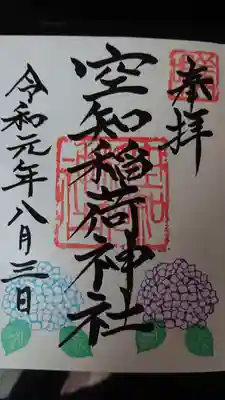 奉拝
空知稲荷神社
令和元年八月三日